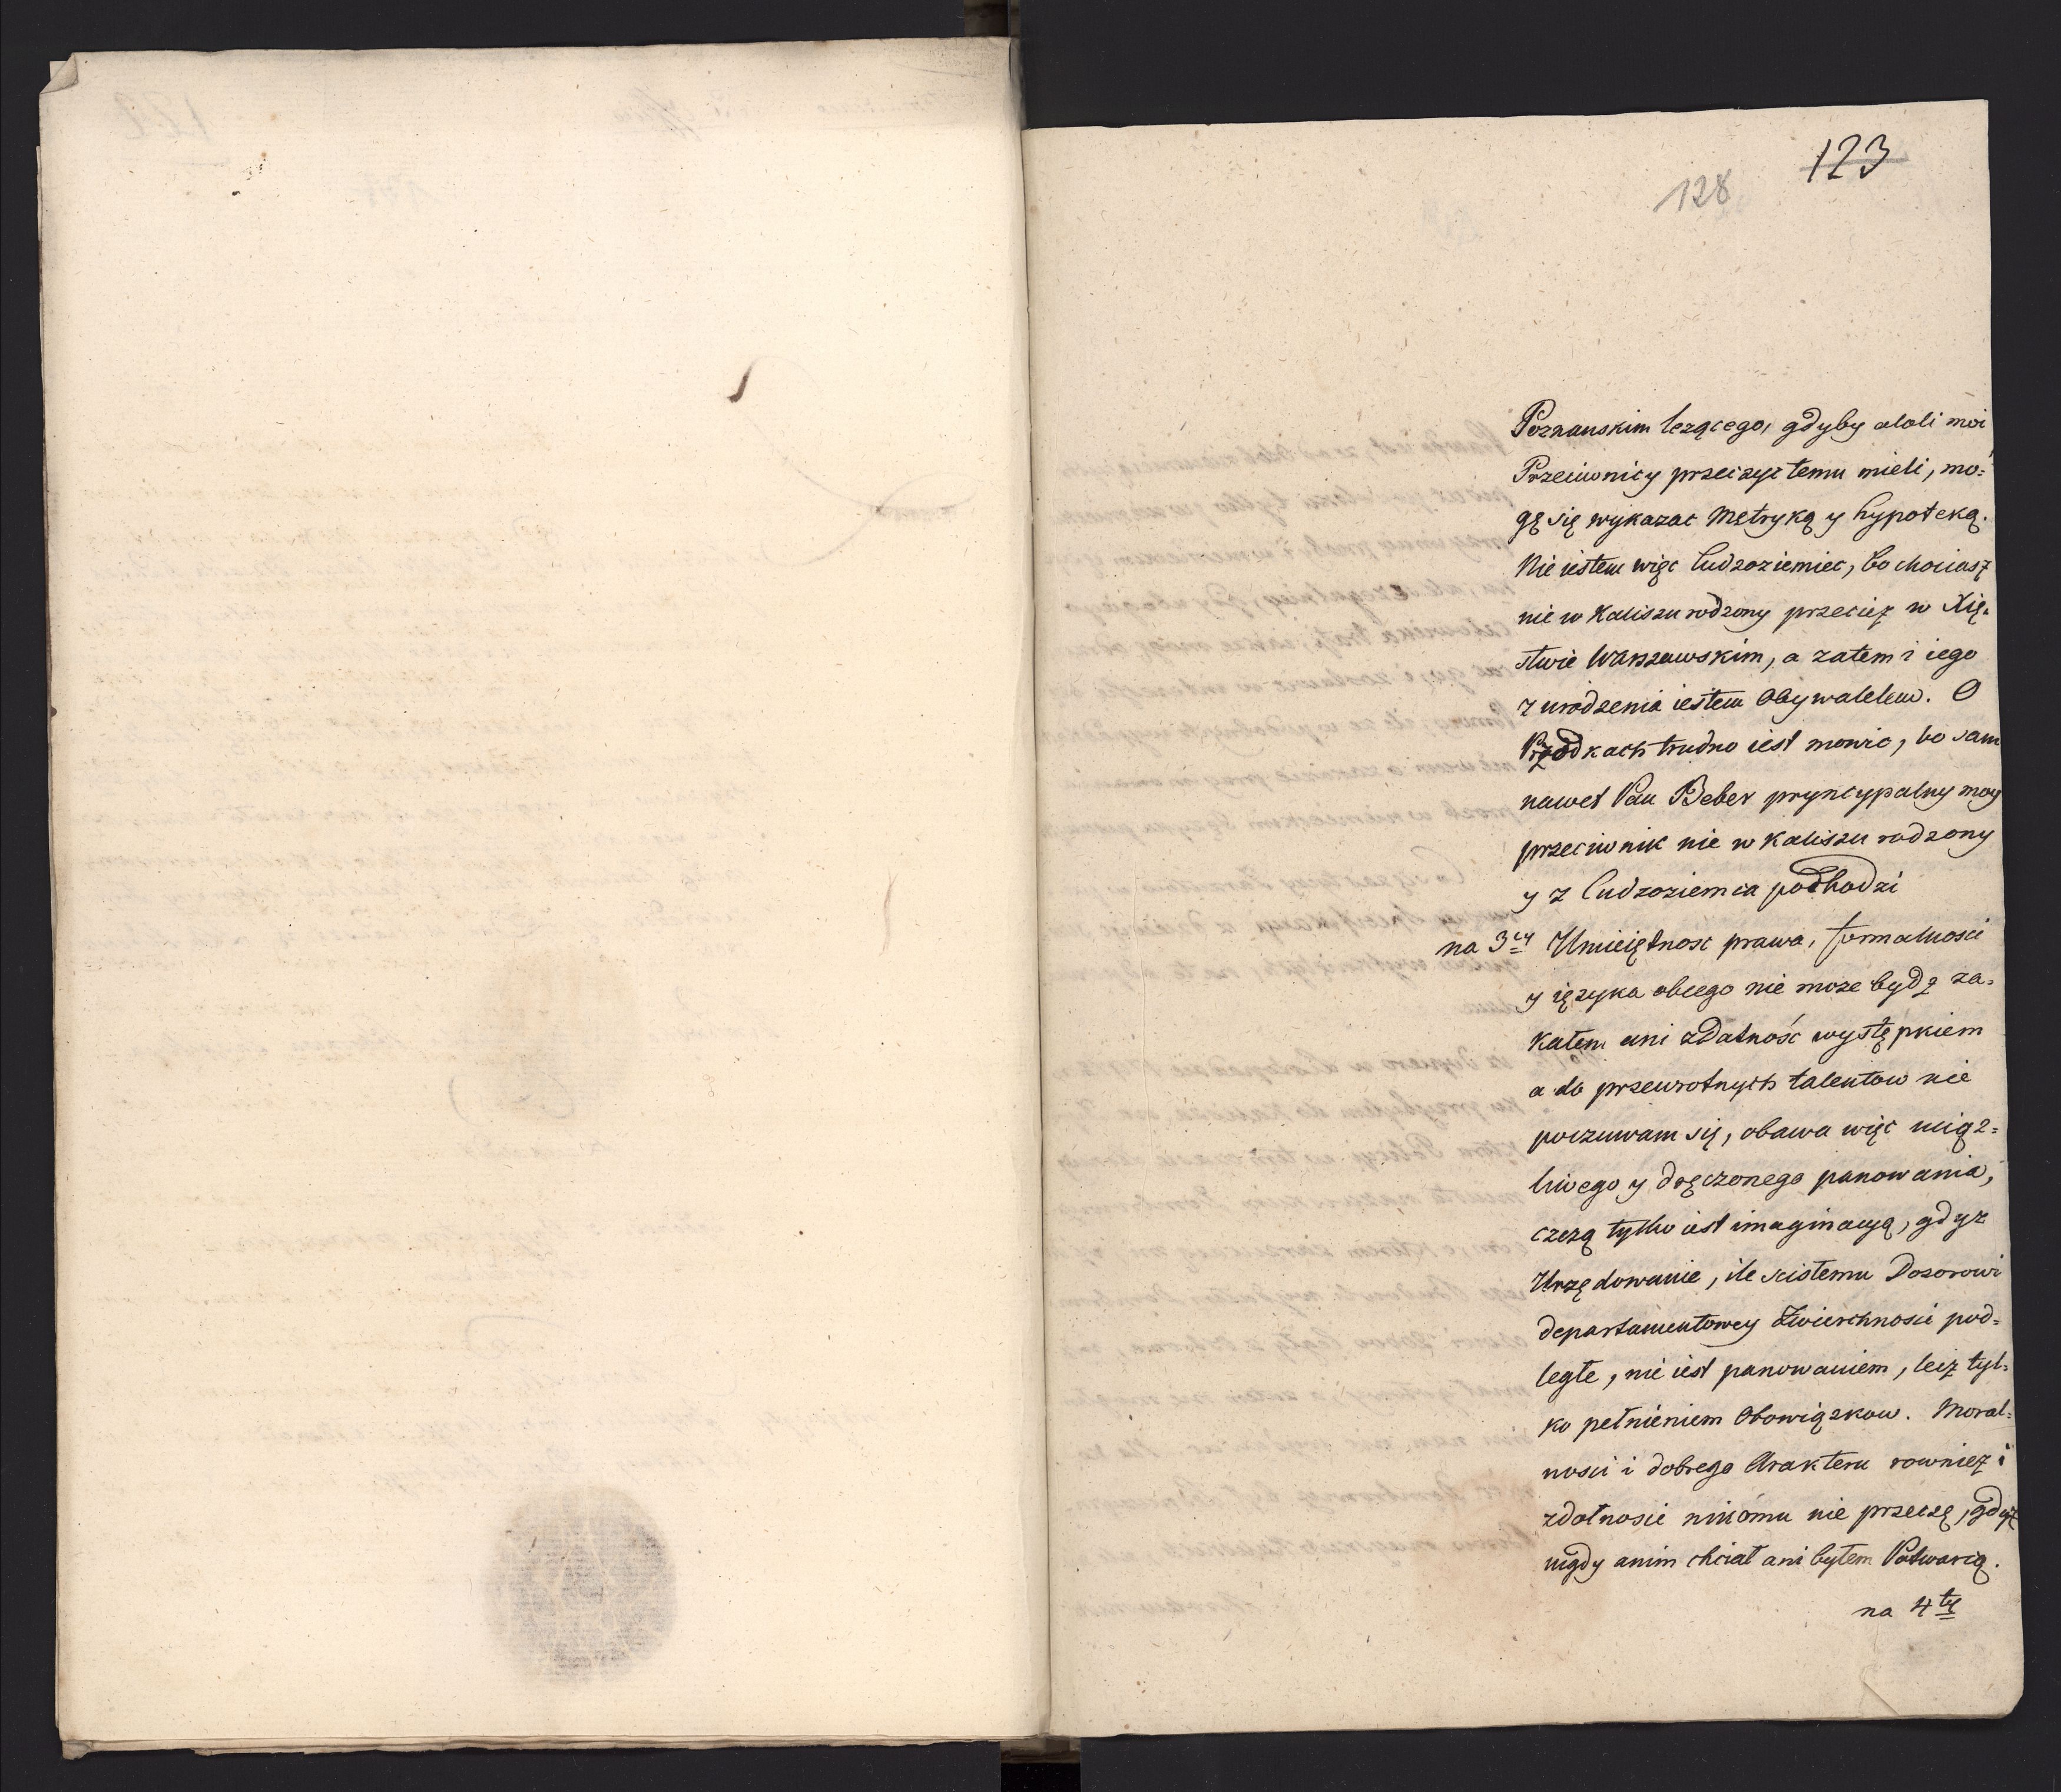 123
128
Poznanskim lezącego, gdyby aloli moi
Przeciwnicy przeczyc temu mieli, mo=
gę się wykazac Metryką y hypoteką.
Nie iestem więc Cudzoziemiec, bo chociasz
nie w Kaliszu rodzony przecież w Xię=
stwie Warszawskim, a zatem i iego
z urodzenia iestem Obywatelem. O
Przodkach trudno iest mowic, bo sam
nawet Pan Beber pryncypalny moy
przeciwnik nie w Kaliszu rodzony
y z Cudzoziemca pochodzi
na 3cy Umieiętnosc prawa, formalnosci
y ięzyka obcego nie moze bydz za=
katem ani zdatność występkiem
a do przewrotnych talentow nie
poczuwam się, obawa więc uciąz=
liwego y dręczonego panowania,
czczą tylko iest imaginacyą, gdyz
Urzędowanie, ile scisłemu Dozorowi
departamentowey Zwierchnosci pod=
ległe, nie iest panowaniem, lecz tyl=
ko pełnieniem Obowiązkow. Moral=
nosci i dobrego Charakteru rownież i
zdatnosci nikomu nie przeczę, gdyż
nigdy anim chciał ani byłem Potwarcą.
na 4ty